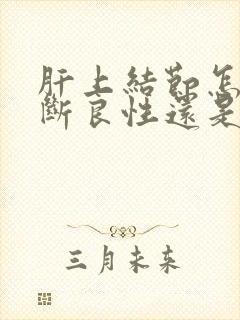 肝上結節怎
斷良性還是
三月未来